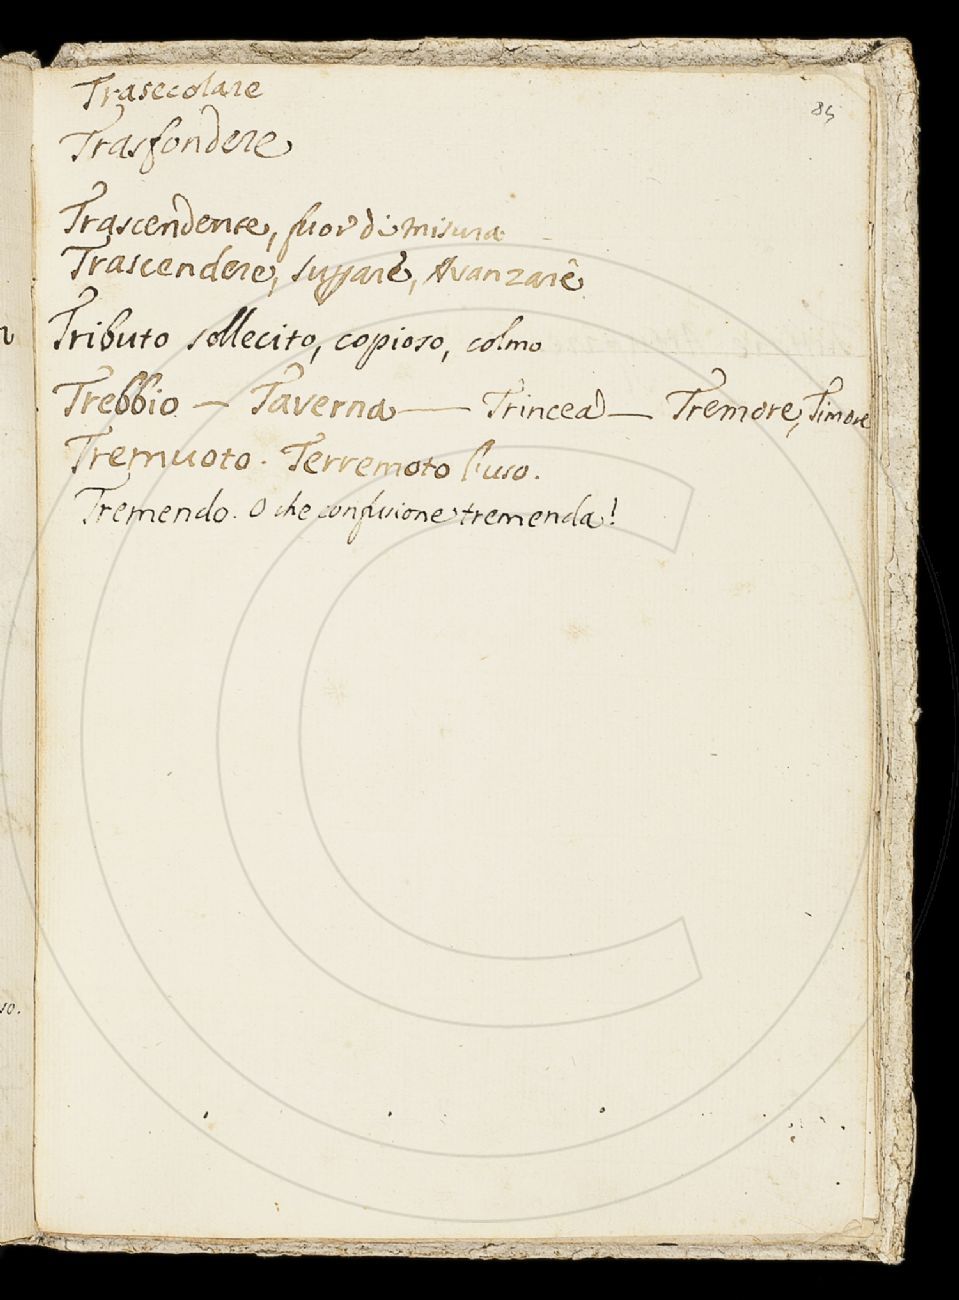 85
Trasecolare
Trasfondere
Trascendente, fuor di misura
Trascendere, Avanzare
Tributo sollecito, copioso, colmo
Trebbio — Taverna — Trincea — Tremore, Timore
Tremuoto. Terremoto l'uso.
Tremendo. O che confusione tremenda!